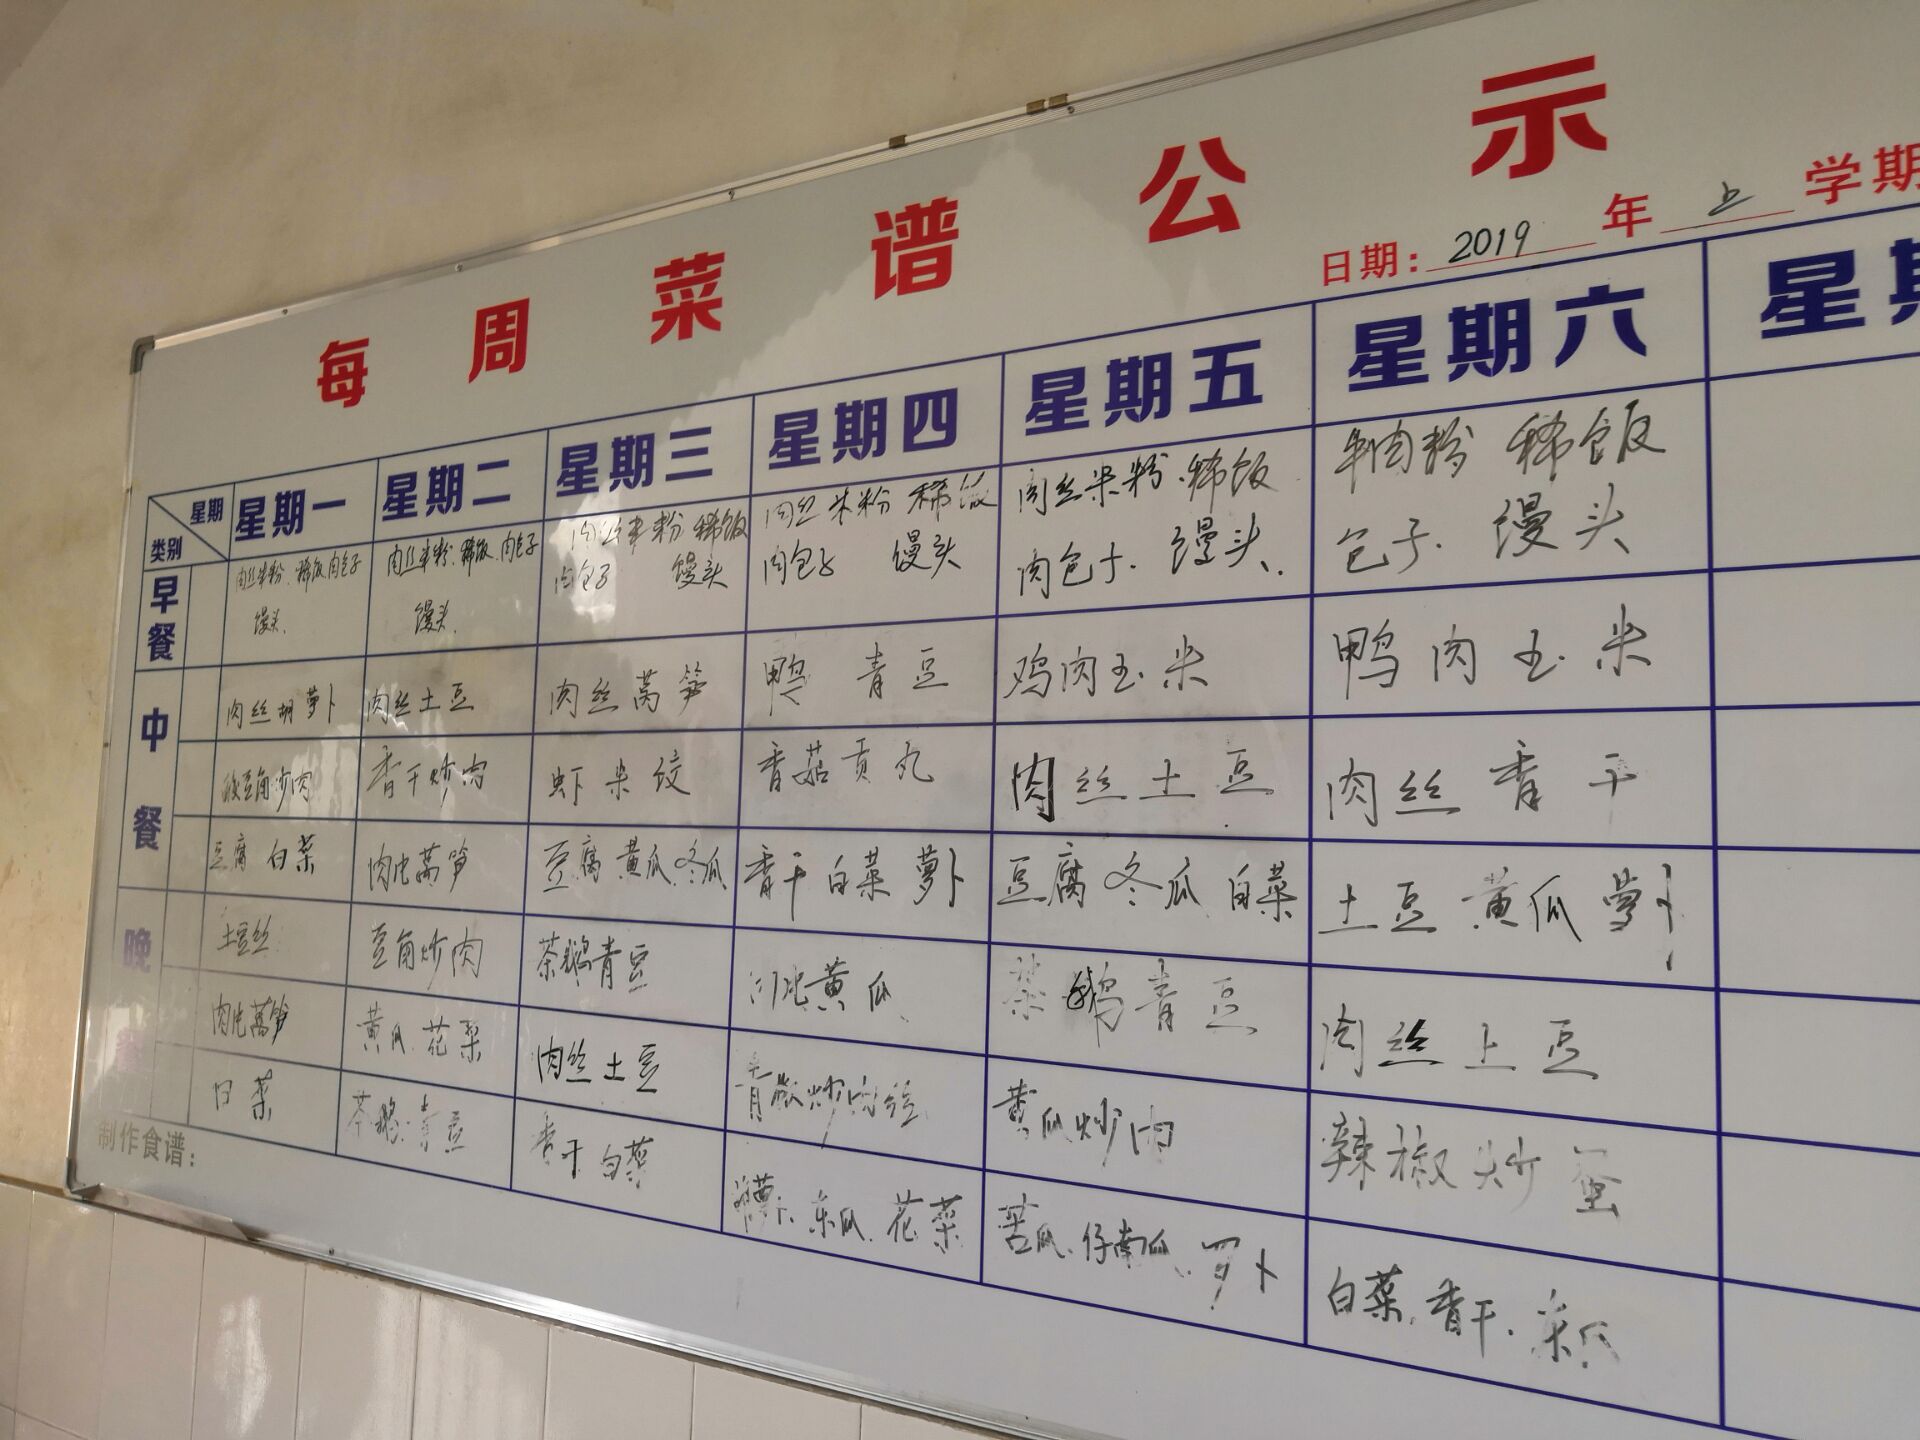 每周菜谱公示
日期: 2019 年 上 学期
星期 星期一 星期二 星期三 星期四 星期五 星期六 星
类别
早餐
肉丝米粉、稀饭 肉包子
馒头、
肉丝米粉、稀饭、肉包子
馒头
肉丝米粉 稀饭
肉包子 馒头
肉丝米粉 稀饭
肉包子 馒头
肉丝米粉、稀饭
肉包子、馒头、
牛肉粉 稀饭
包子、馒头
中餐
肉丝胡萝卜 肉丝土豆 肉丝莴笋 鸭 青豆 鸡肉玉米 鸭肉玉米
豆角炒肉 香干炒肉 虾米饺 香菇贡丸 肉丝土豆 肉丝香干
豆腐 白菜 肉片莴笋 豆腐 黄瓜、冬瓜 香干 白菜 萝卜 豆腐 冬瓜 白菜 土豆 黄瓜 萝卜
晚餐
土豆丝 豆角炒肉 茶鹅青豆 黄瓜 茶鹅青豆 肉丝土豆
肉片莴笋 黄瓜、花菜 肉丝土豆 炒肉丝 黄瓜炒肉 辣椒炒蛋
白菜 茶鹅、青豆 香干 白菜 冬瓜、花菜 苦瓜、仔南瓜、萝卜 白菜、香干、
制作食谱: